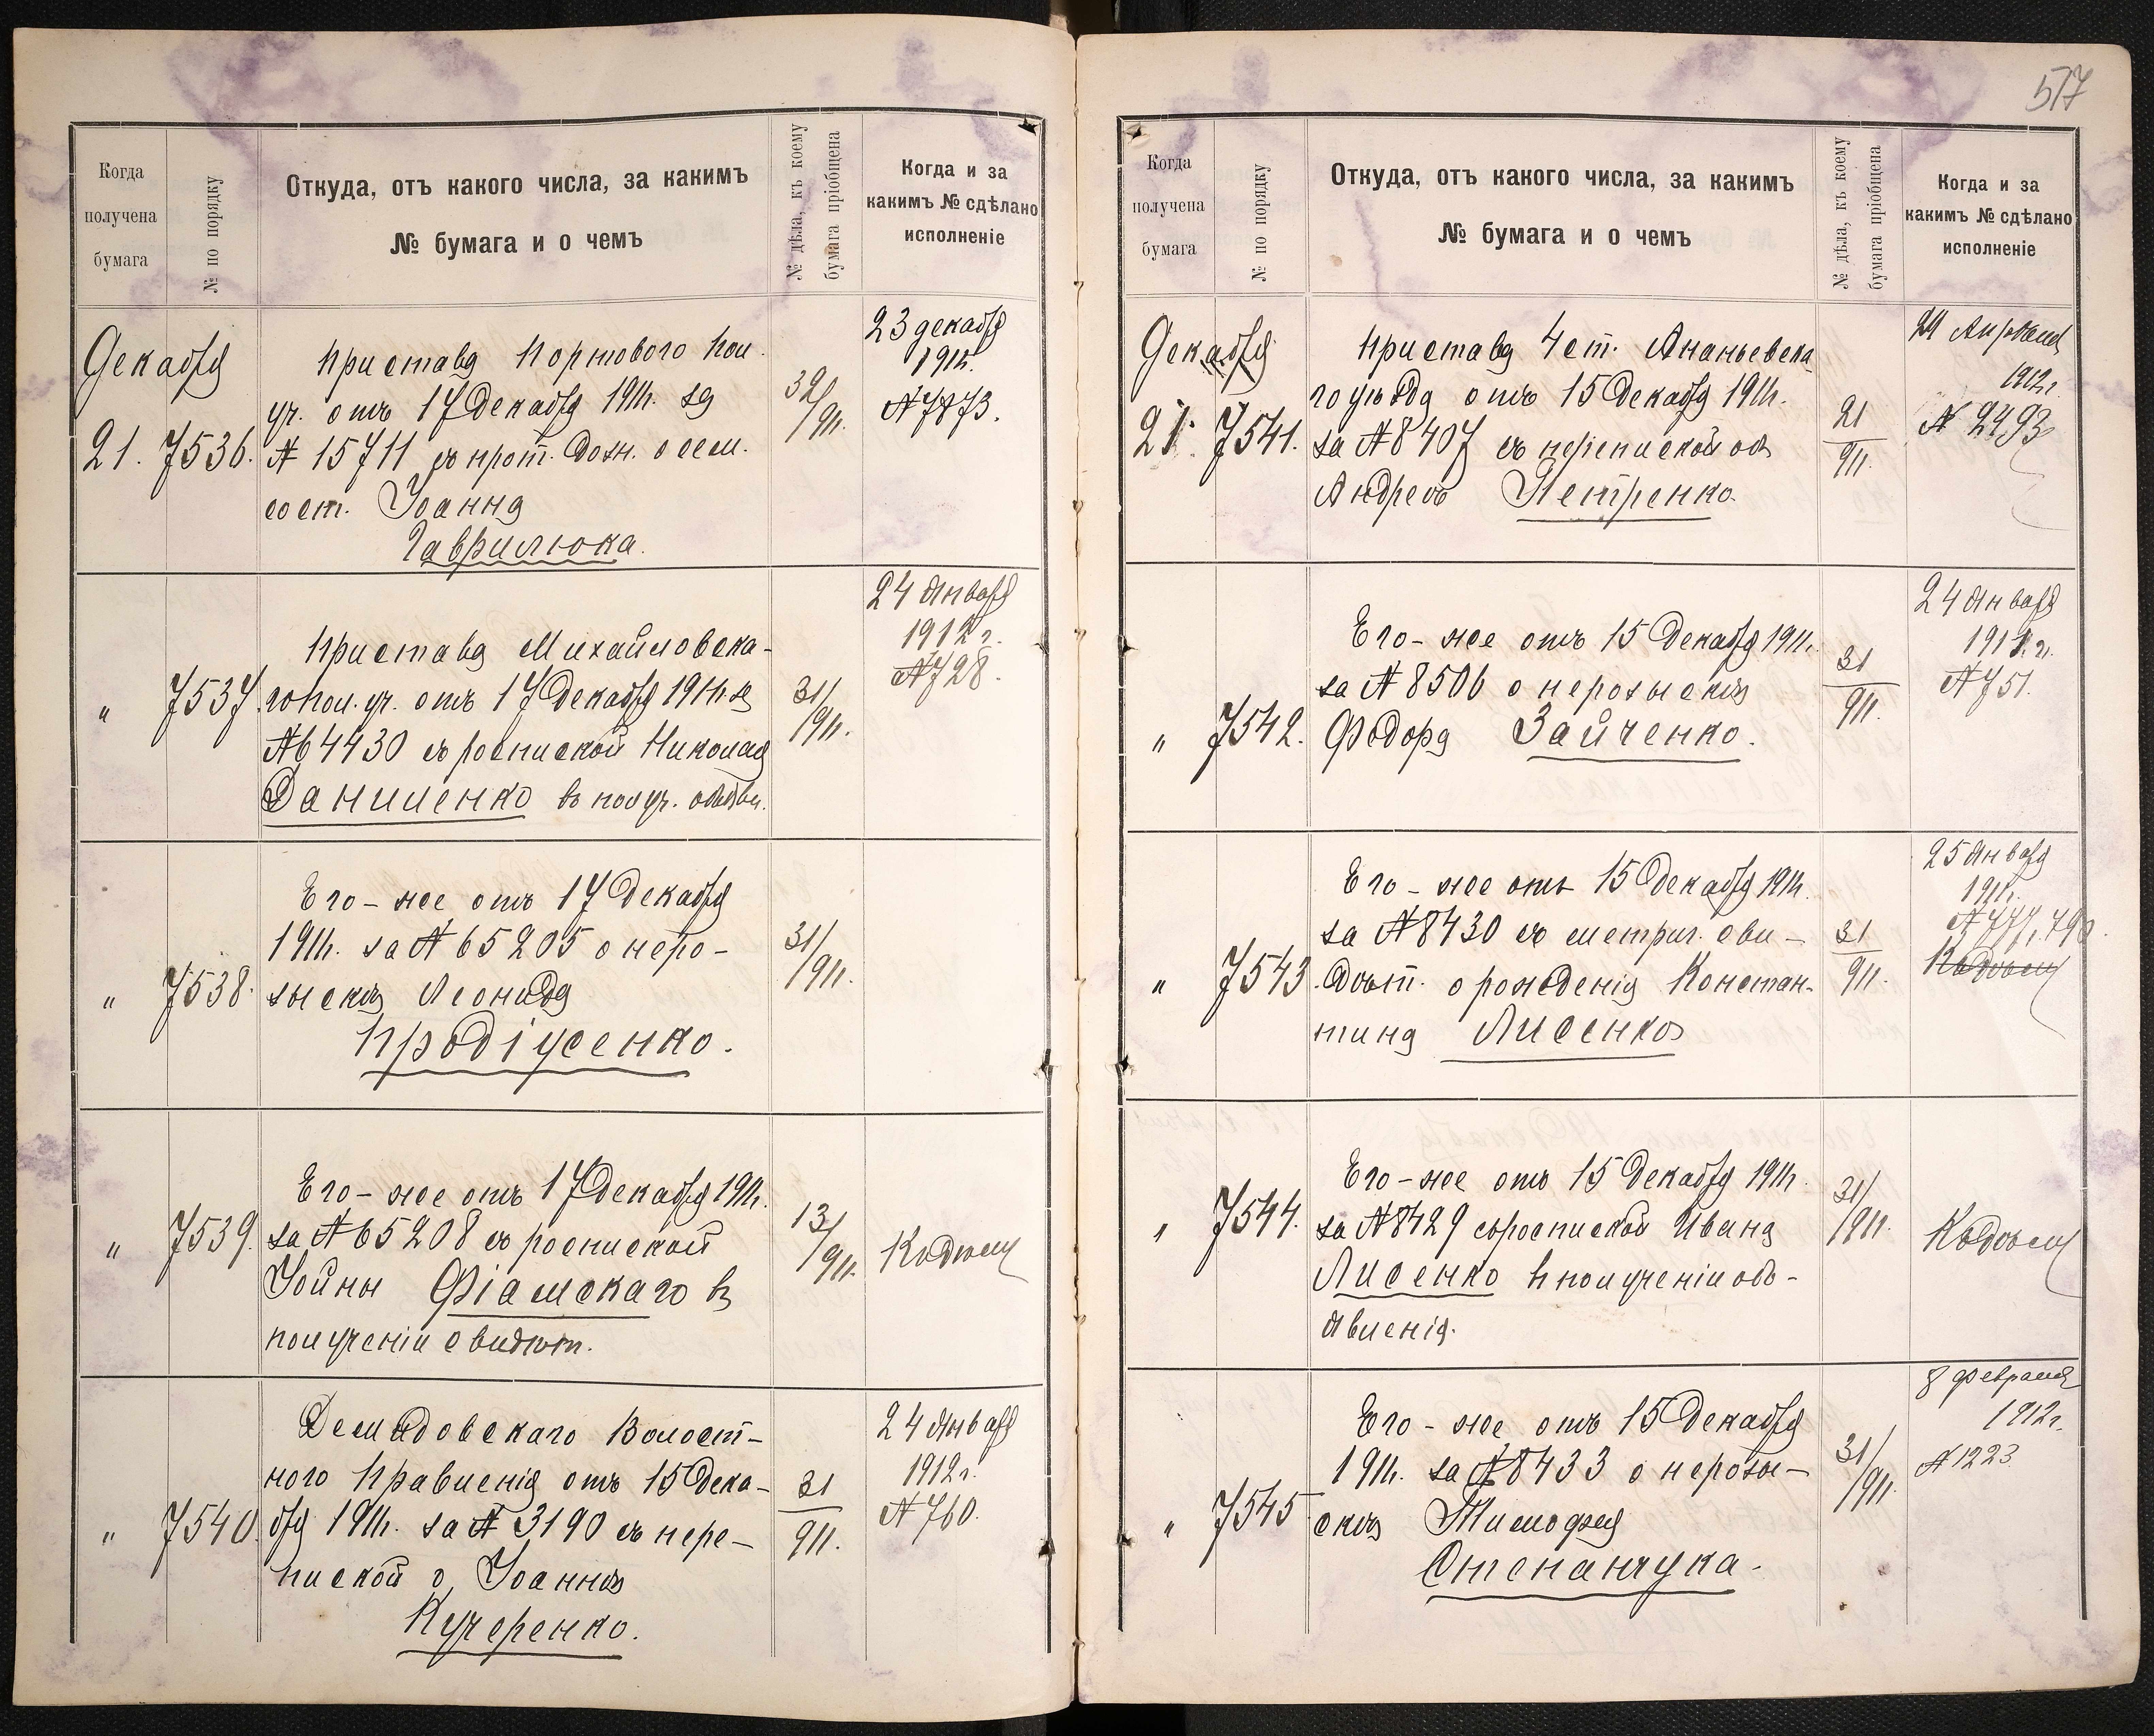 517
Когда
получена
бумага
№ по порядку
Откуда, отъ какого числа, за какимъ
№ бумага и о чемъ
№ дѣла, къ коему
бумага пріобщена
Когда и за
какимъ № сдѣлано
исполненіе
Декабря
21. 7536.
Пристава Портового пол.
уч. отъ 17 Декабря 1911г. за
№ 15711 съ прот. дозн. о сем.
сост. Іоанна
Гаврилюка.
32/911.
23 декабря
1911г.
№ 7873.
" 7537.
Пристава Михайловска-
го пол. уч. отъ 17 Декабря 1911г. за
№ 64430 съ роспиской Николая
Даниленко въ получ. объявл.
31/911.
24 Января
1912 г.
№ 728.
" 7538.
Его-же отъ 17 Декабря
1911г. за № 65205 о неро-
зыскѣ Леонида
Продіусенко.
31/911.
" 7539.
Его-же отъ 17 Декабря 1911г.
за № 65208 съ роспиской
Іойны Фіамскаго въ
полученіи свидѣт.
13/911.
Къ дѣлу
" 7540.
Демидовскаго Волост-
ного Правленія отъ 15 Дека-
бря 1911г. за № 3190 съ пере-
пиской о Іоаннѣ
Кучеренко.
31
911.
24 Января
1912г.
№ 760.
Когда
получена
бумага
№ по порядку
Откуда, отъ какого числа, за какимъ
№ бумага и о чемъ
№ дѣла, къ коему
бумага пріобщена
Когда и за
какимъ № сдѣлано
исполненіе
Декабря
21. 7541.
Пристава 4 ст. Ананьевска
го уѣзда отъ 15 Декабря 1911г.
за № 8407 съ перепиской объ
Андреѣ Петренко.
21
911.
Апрѣля
1912г.
№ 2493
" 7542.
Его-же отъ 15 Декабря 1911г.
за № 8506 о нерозыскѣ
Федора Зайченко.
31
911.
24 Января
1912 г.
№ 751.
" 7543.
Его-же отъ 15 Декабря 1911г.
за № 8430 съ метрич. сви-
дѣт. о рожденіи Констан-
тина Лисенко
31
911.
25 Января
1911г.
№ 777, 790.
Къ дѣлу
" 7544.
Его-же отъ 15 Декабря 1911г.
за № 8429 съ роспиской Ивана
Лисенко въ полученіи объ-
явленія.
31/911.
Къ дѣлу
" 7545
Его-же отъ 15 Декабря
1911г. за № 8433 о нерозы-
скѣ Тимофея
Степанчука.
31/911.
8 Февраля
1912г.
№ 1223